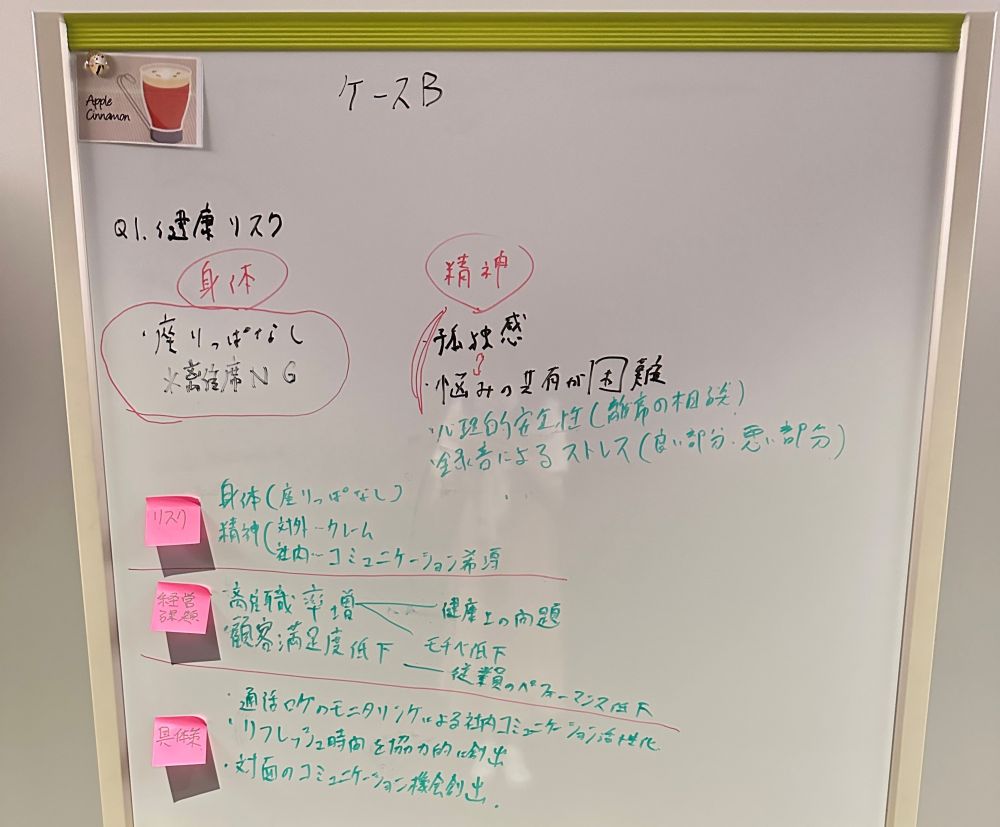 Apple
Cinnamon
ケースB
Q1.健康リスク
身体
・座りっぱなし
※離席NG
精神
孤独感
・悩みの共有が困難
・心理的安全性(離席の相談)
・録音によるストレス(良い部分、悪い部分)
リスク
身体(座りっぱなし)
精神(対外…クレーム
社内…コミュニケーション希薄
経営
課題
・離職率増
健康上の問題
モチベ低下
・顧客満足度低下
従業員のパフォーマンス低下
具体策
・通話ログのモニタリングによる社内コミュニケーション活性化
・リフレッシュ時間を協力的に創出
・対面のコミュニケーション機会創出.